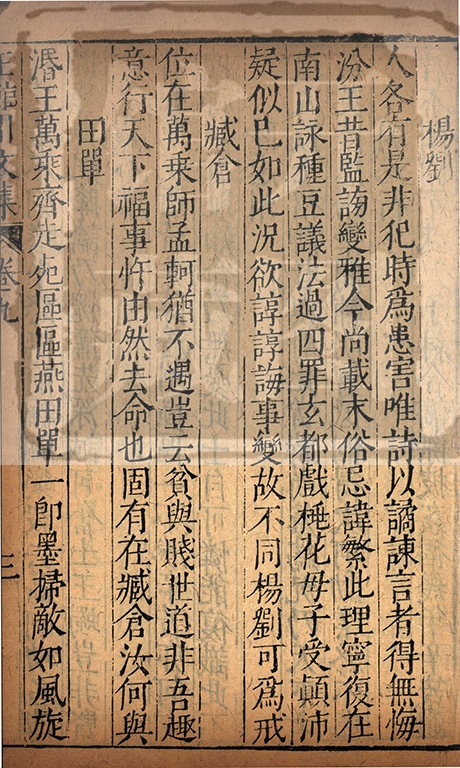 楊劉
人各有是非犯時爲患害唯詩以譎諫言者得無悔
汾王昔監謗變雅今尚載末俗忌諱繁此理寧復在
南山詠種豆議法過四罪玄都戲桃花母子受顛沛
疑似已如此況欲諄諄誨事變故不同楊劉可爲戒
臧倉
位在萬乗師孟軻猶不遇豈云貧與賤世道非吾趣
意行天下福事忤由然去命也固有在臧倉汝何與
田單
湣王萬乘齊走死區區燕田單一即墨掃敵如風旋
王荊川文集 卷九 三